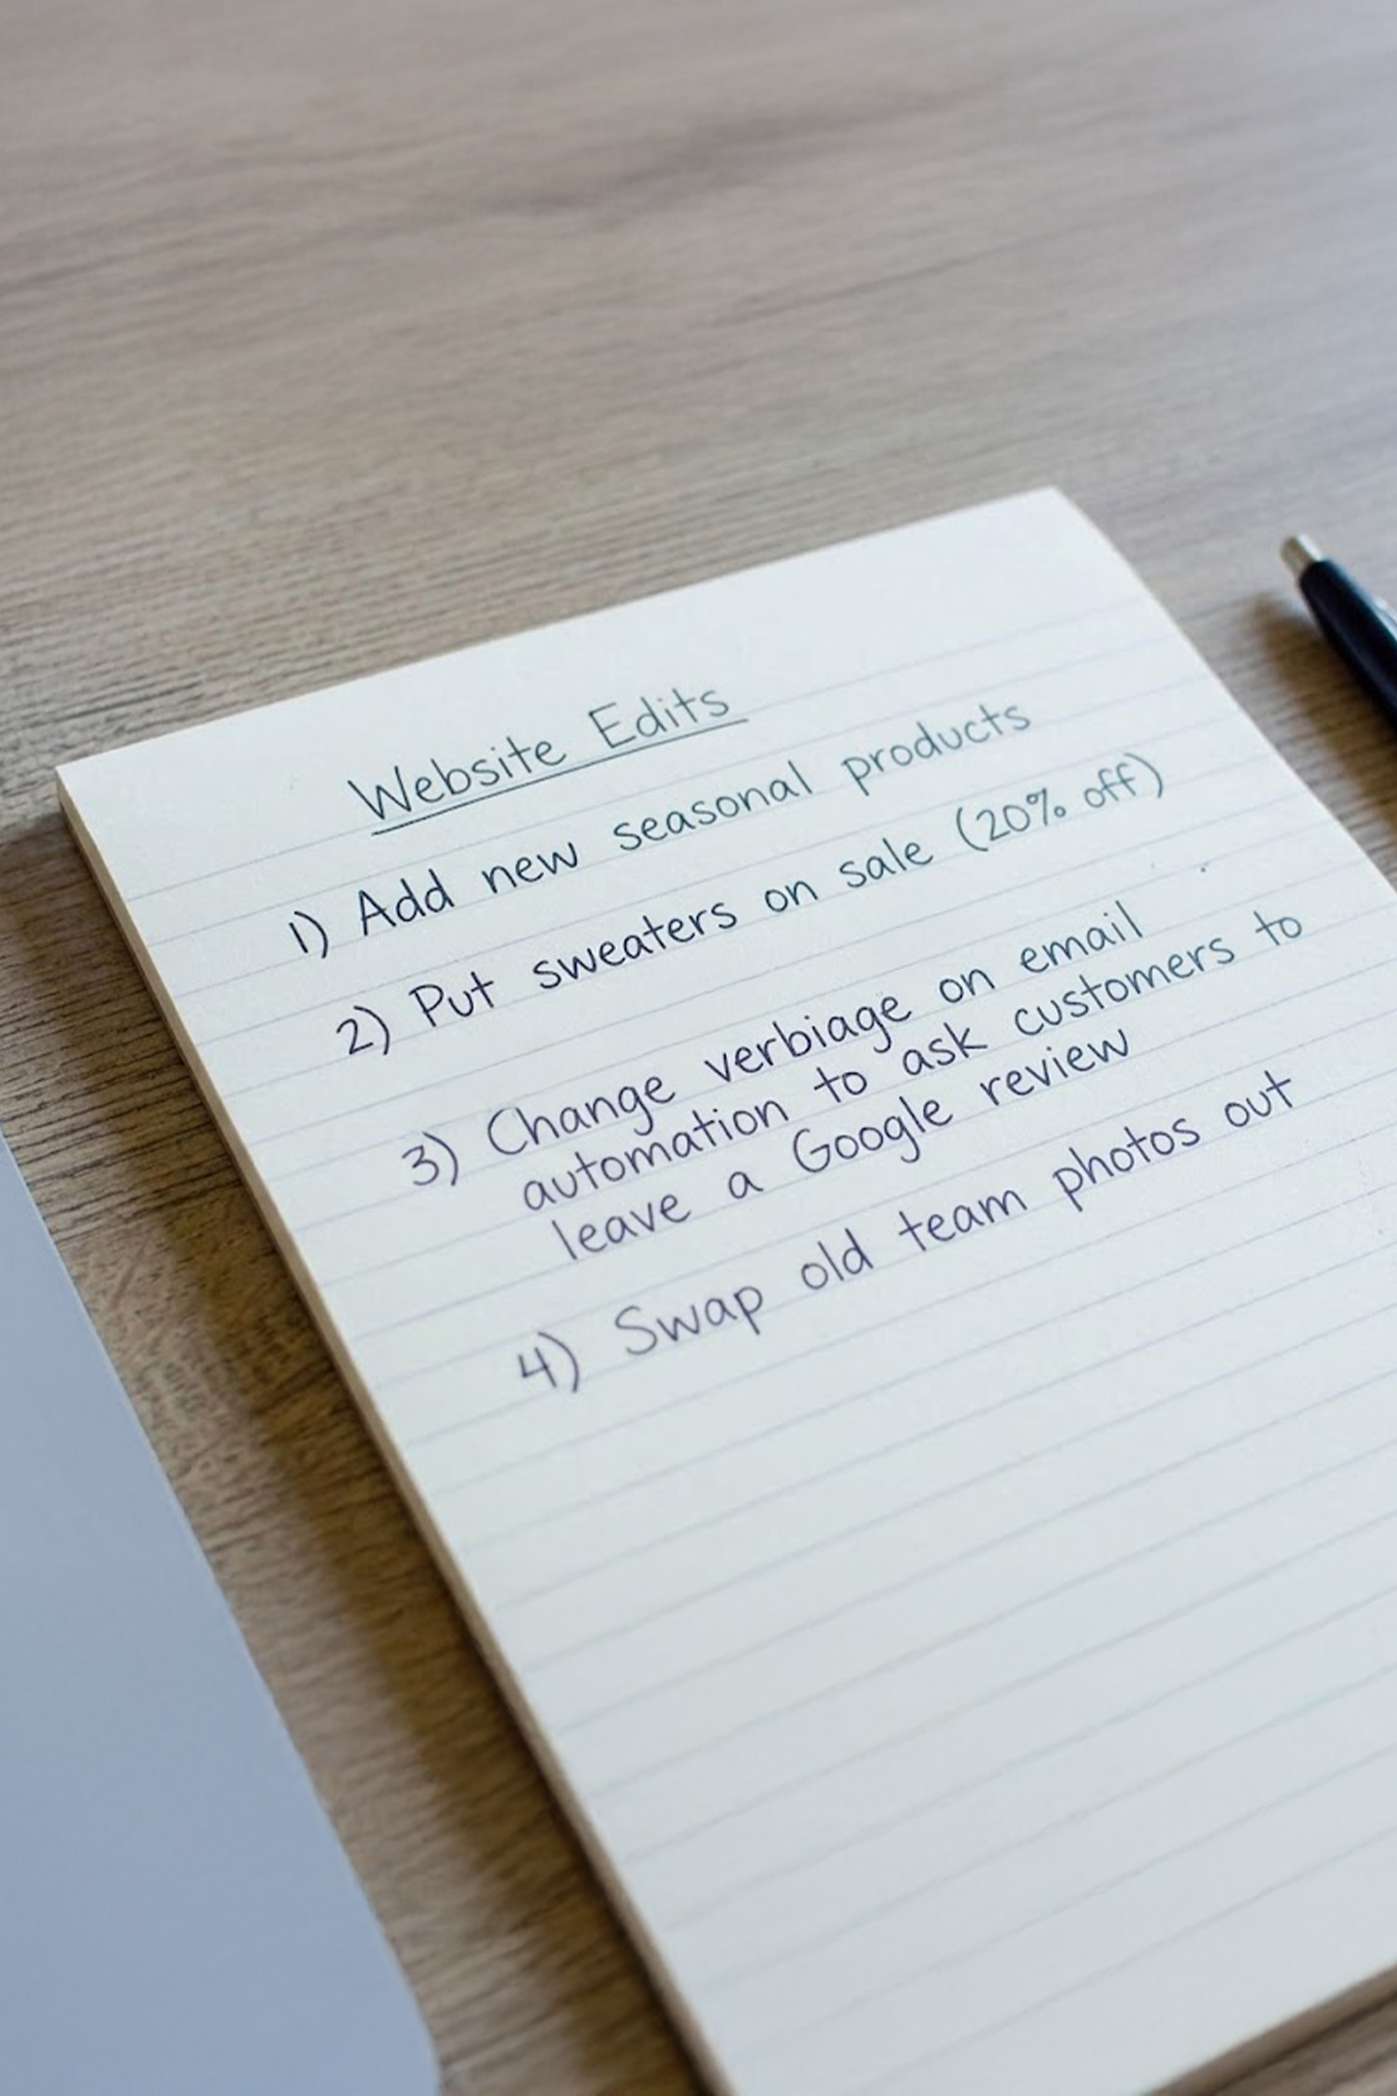 Website Edits
1) Add new seasonal products
2) Put sweaters on sale (20% off)
3) Change verbiage on email
automation to ask customers to
leave a Google review
4) Swap old team photos out